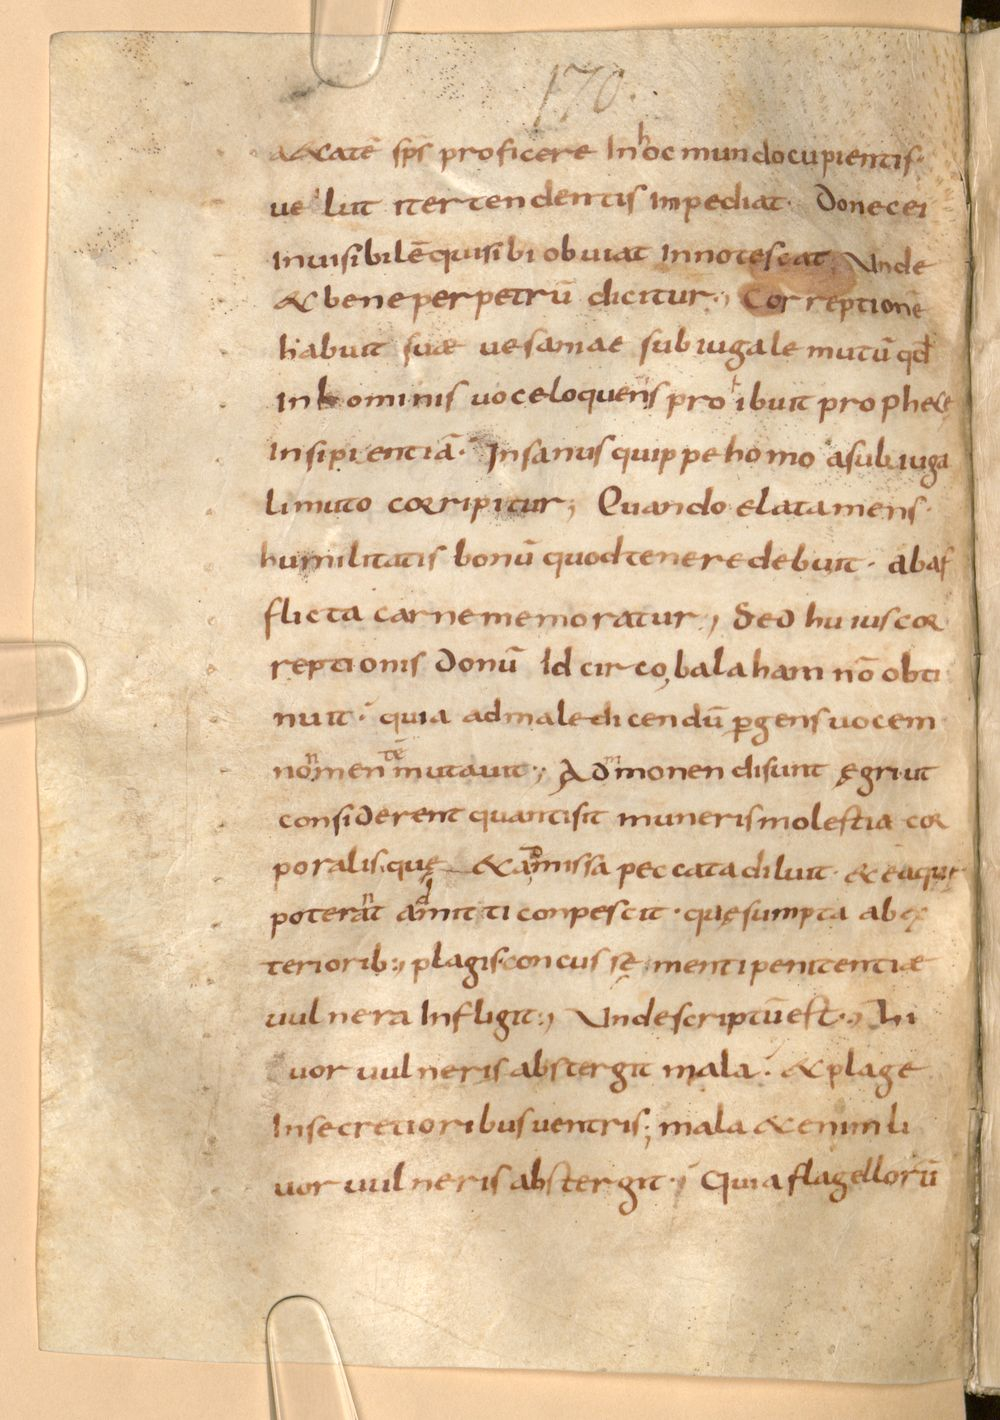 170.
adetatē sp̄s proficere In hoc mundo cupientis·
velut iter tendentis inpediat· Donec ei
Inuisibilē qui sibi obuiat innotescat; Unde
& bene per petrū dicitur·, Correptionē
habuit suae vesaniae subiugale mutū qd̄
In hominis uoce loquens proibuit prophetę
Insipientiā· Insanus quippe homo a subiuga
li muto corripitur, Quando elata mens·
humilitatis bonū quod tenere debuit· ab af
flicta carne memoratur·, Sed huius cor
reptionis donū Idcirco balaham nō obti
nuit· quia ad maledicendū ꝑgens uocem
non mentē mutauit·, Admonendi sunt ęgri ut
considerent quanti sit muneris molestia cor
poralis· quę & admissa peccata diluit· & ea quę
poterant admitti conpescit· quę sumpta ab ex
teriorib:, plagis concussę menti penitentiae
uulnera Infligit·, Unde scriptū est·, Li
uor uulneris abstergit mala· & plage
In secretioribus uentris; mala & enim li
uor uulneris abstergit·, Quia flagellorū